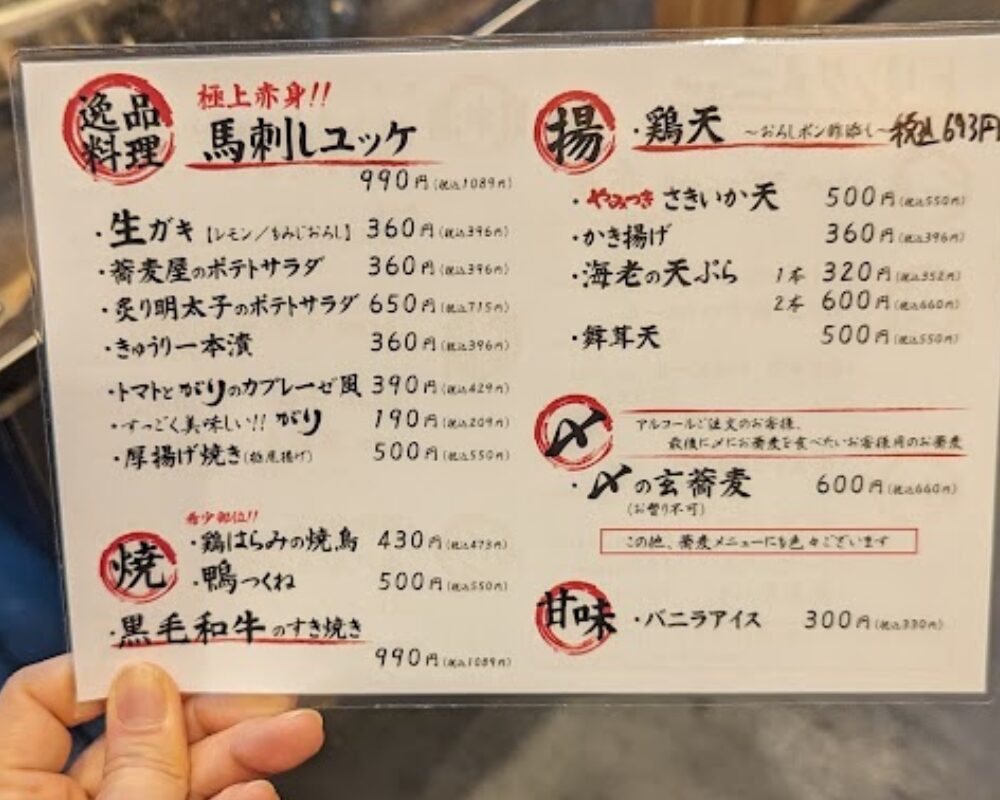 逸品
料理
極上赤身!!
馬刺しユッケ
990円(税込1089円)
・生ガキ【レモン/もみじおろし】 360円(税込396円)
・蕎麦屋のポテトサラダ 360円(税込396円)
・炙り明太子のポテトサラダ 650円(税込715円)
・きゅうり一本漬 360円(税込396円)
・トマトとがりのカプレーゼ風 390円(税込429円)
・すっごく美味しい!! がり 190円(税込209円)
・厚揚げ焼き(栃尾揚げ) 500円(税込550円)
焼
希少部位!!
・鶏はらみの焼鳥 430円(税込473円)
・鴨つくね 500円(税込550円)
・黒毛和牛のすき焼き
990円(税込1089円)
揚
・鶏天 〜おろしポン酢添え〜 税込693円
・やみつき さきいか天 500円(税込550円)
・かき揚げ 360円(税込396円)
・海老の天ぷら 1本 320円(税込352円)
2本 600円(税込660円)
・舞茸天 500円(税込550円)
〆
アルコールご注文のお客様、
最後に〆にお蕎麦を食べたいお客様用のお蕎麦
・〆の玄蕎麦 600円(税込660円)
(お替り不可)
この他、蕎麦メニューにも色々ございます
甘味
・バニラアイス 300円(税込330円)